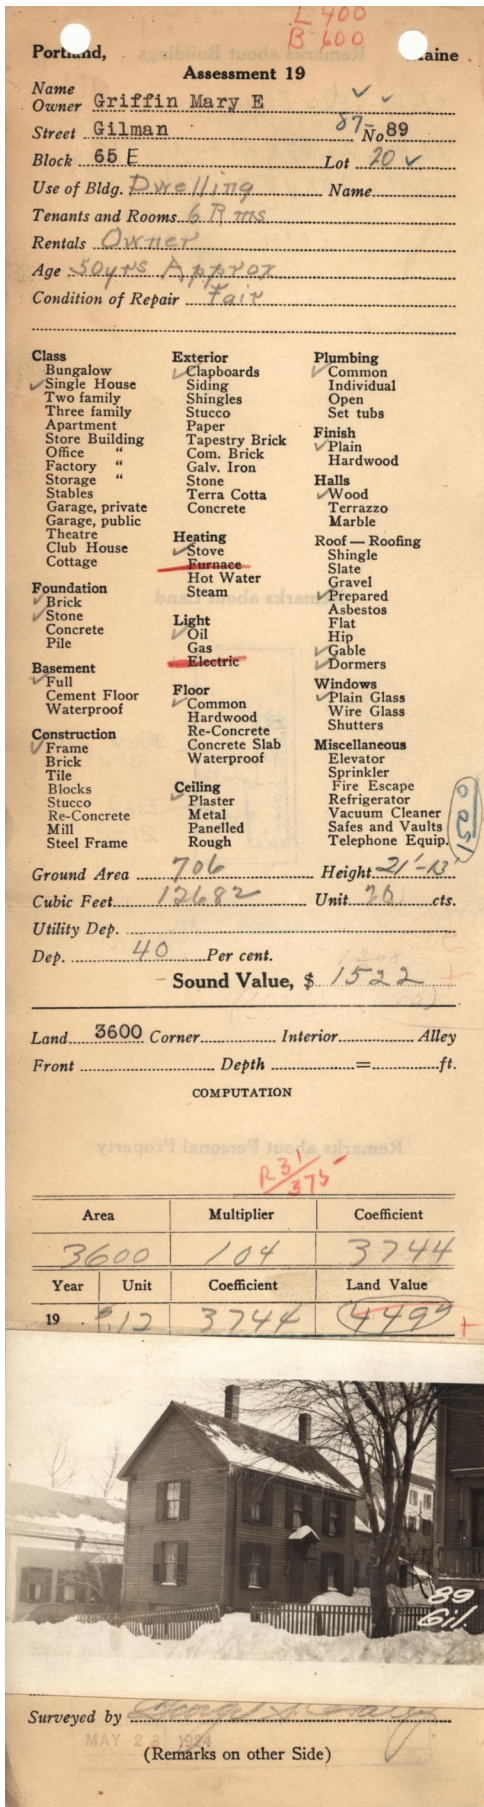 L 400
B 600
Portland, Maine
Assessment 19
Name
Owner Griffin Mary E
Street Gilman 87- No 89
Block 65 E Lot 20
Use of Bldg. Dwelling Name
Tenants and Rooms 6 Rms
Rentals Owner
Age 50yrs Approx
Condition of Repair Fair
Class
Bungalow
Single House
Two family
Three family
Apartment
Store Building
Office "
Factory "
Storage "
Stables
Garage, private
Garage, public
Theatre
Club House
Cottage
Foundation
Brick
Stone
Concrete
Pile
Basement
Full
Cement Floor
Waterproof
Construction
Frame
Brick
Tile
Blocks
Stucco
Re-Concrete
Mill
Steel Frame
Exterior
Clapboards
Siding
Shingles
Stucco
Paper
Tapestry Brick
Com. Brick
Galv. Iron
Stone
Terra Cotta
Concrete
Heating
Stove
Furnace
Hot Water
Steam
Light
Oil
Gas
Electric
Floor
Common
Hardwood
Re-Concrete
Concrete Slab
Waterproof
Ceiling
Plaster
Metal
Panelled
Rough
Plumbing
Common
Individual
Open
Set tubs
Finish
Plain
Hardwood
Halls
Wood
Terrazzo
Marble
Roof — Roofing
Shingle
Slate
Gravel
Prepared
Asbestos
Flat
Hip
Gable
Dormers
Windows
Plain Glass
Wire Glass
Shutters
Miscellaneous
Elevator
Sprinkler
Fire Escape
Refrigerator
Vacuum Cleaner
Safes and Vaults
Telephone Equip.
Ground Area 706 Height 21'-13'
Cubic Feet 12682 Unit 20 cts.
Utility Dep.
Dep. 40 Per cent.
Sound Value, $ 1522
Land 3600 Corner Interior Alley
Front Depth = ft.
COMPUTATION
R31
375
Area Multiplier Coefficient
3600 104 3744
Year Unit Coefficient Land Value
19 .12 3744 449
89
Gil.
Surveyed by
MAY 23 1924
(Remarks on other Side)